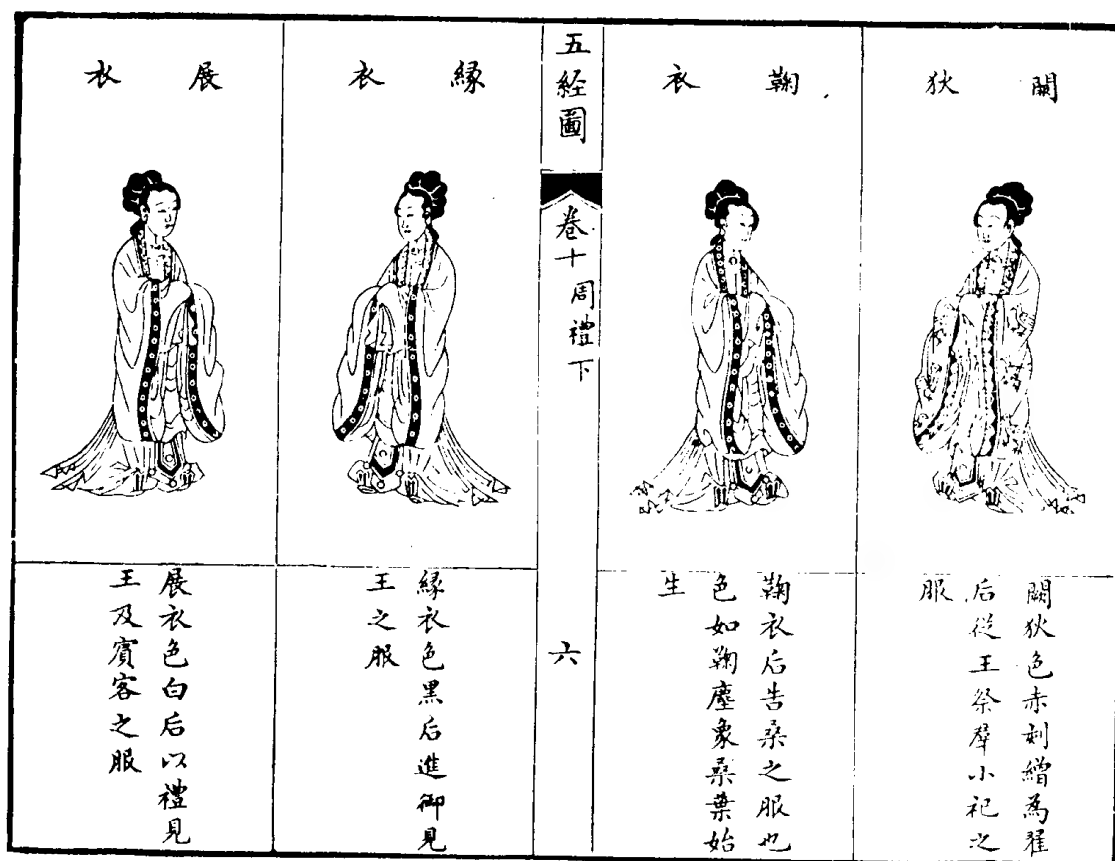 闕狄
闕狄色赤刻繒為翟
后從王祭羣小祀之
服
鞠衣
鞠衣后告桑之服也
色如鞠塵象桑葉始
生
五經圖
卷十周禮下
六
緣衣
緣衣色黑后進御見
王之服
展衣
展衣色白后以禮見
王及賓客之服